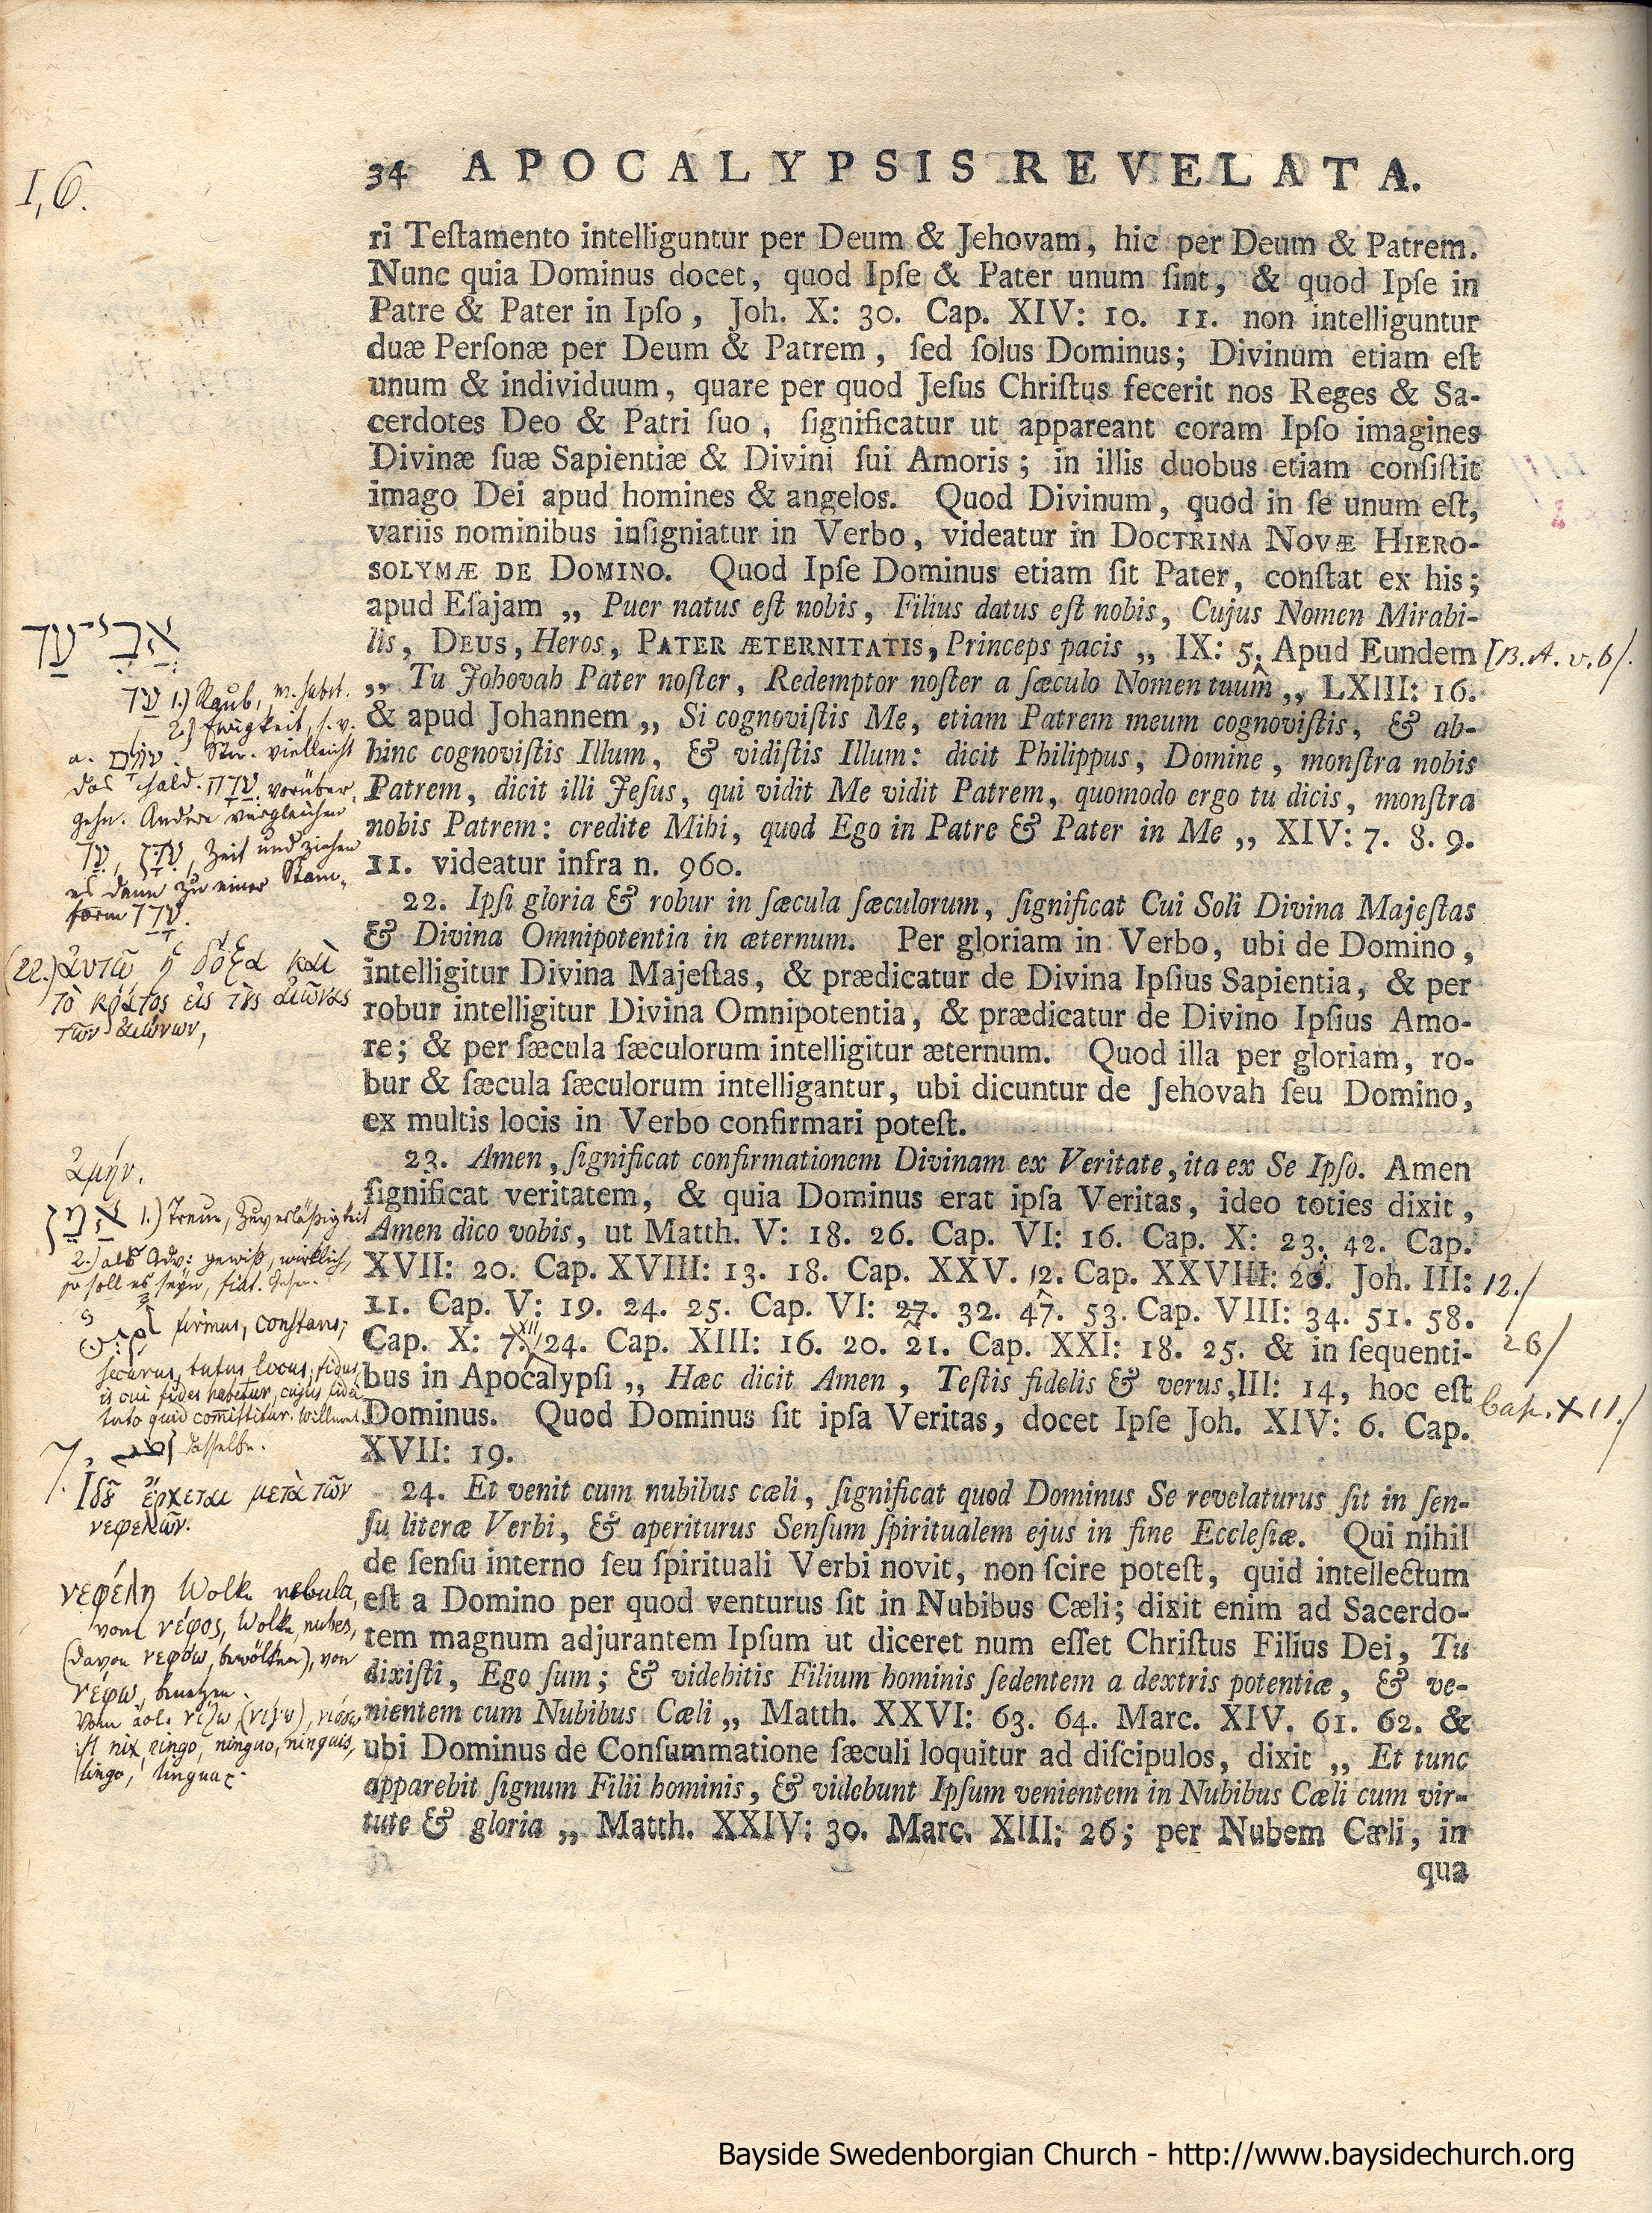 I, 6.
34 APOCALYPSIS REVELATA.
ri Teſtamento intelliguntur per Deum & Jehovam, hic per Deum & Patrem.
Nunc quia Dominus docet, quod Ipſe & Pater unum ſint, & quod Ipſe in
Patre & Pater in Ipſo, Joh. X: 30. Cap. XIV: 10. 11. non intelliguntur
duæ Perſonæ per Deum & Patrem, ſed ſolus Dominus; Divinum etiam eſt
unum & individuum, quare per quod Jeſus Chriſtus fecerit nos Reges & Sa-
cerdotes Deo & Patri ſuo, ſignificatur ut appareant coram Ipſo imagines
Divinæ ſuæ Sapientiæ & Divini ſui Amoris; in illis duobus etiam conſiſtit
imago Dei apud homines & angelos. Quod Divinum, quod in ſe unum eſt,
variis nominibus inſigniatur in Verbo, videatur in DOCTRINA NOVÆ HIERO-
SOLYMÆ DE DOMINO. Quod Ipſe Dominus etiam ſit Pater, conſtat ex his;
apud Eſajam „ Puer natus eſt nobis, Filius datus eſt nobis, Cujus Nomen Mirabi-
lis, DEUS, Heros, PATER ÆTERNITATIS, Princeps pacis „ IX: 5. Apud Eundem
[B. A. v. 6/.
„ Tu Johovah Pater noſter, Redemptor noſter a ſæculo Nomen tuum „ LXIII: 16.
& apud Johannem „ Si cognoviſtis Me, etiam Patrem meum cognoviſtis, & ab-
hinc cognoviſtis Illum, & vidiſtis Illum: dicit Philippus, Domine, monſtra nobis
Patrem, dicit illi Jeſus, qui vidit Me vidit Patrem, quomodo ergo tu dicis, monſtra
nobis Patrem: credite Mihi, quod Ego in Patre & Pater in Me „ XIV: 7. 8. 9.
11. videatur infra n. 960.
22. Ipſi gloria & robur in ſæcula ſæculorum, ſignificat Cui Soli Divina Majeſtas
& Divina Omnipotentia in æternum. Per gloriam in Verbo, ubi de Domino,
intelligitur Divina Majeſtas, & prædicatur de Divina Ipſius Sapientia, & per
robur intelligitur Divina Omnipotentia, & prædicatur de Divino Ipſius Amo-
re; & per ſæcula ſæculorum intelligitur æternum. Quod illa per gloriam, ro-
bur & ſæcula ſæculorum intelligantur, ubi dicuntur de Jehovah ſeu Domino,
ex multis locis in Verbo confirmari poteſt.
23. Amen, ſignificat confirmationem Divinam ex Veritate, ita ex Se Ipſo. Amen
ſignificat veritatem, & quia Dominus erat ipſa Veritas, ideo toties dixit,
Amen dico vobis, ut Matth. V: 18. 26. Cap. VI: 16. Cap. X: 23. 42. Cap.
XVII: 20. Cap. XVIII: 13. 18. Cap. XXV. 12. Cap. XXVIII: 20. Joh. III:
12./
11. Cap. V: 19. 24. 25. Cap. VI: 27. 32. 47. 53. Cap. VIII: 34. 51. 58.
26/
Cap. X: 7. XII/ 24. Cap. XIII: 16. 20. 21. Cap. XXI: 18. 25. & in ſequenti-
bus in Apocalypſi „ Hæc dicit Amen, Teſtis fidelis & verus, III: 14, hoc eſt
Cap. XII./
Dominus. Quod Dominus ſit ipſa Veritas, docet Ipſe Joh. XIV: 6. Cap.
XVII: 19.
24. Et venit cum nubibus cæli, ſignificat quod Dominus Se revelaturus ſit in ſen-
ſu literæ Verbi, & aperiturus Senſum ſpiritualem ejus in fine Eccleſiæ. Qui nihil
de ſenſu interno ſeu ſpirituali Verbi novit, non ſcire poteſt, quid intellectum
eſt a Domino per quod venturus ſit in Nubibus Cæli; dixit enim ad Sacerdo-
tem magnum adjurantem Ipſum ut diceret num eſſet Chriſtus Filius Dei, Tu
dixiſti, Ego ſum; & videbitis Filium hominis ſedentem a dextris potentiæ, & ve-
nientem cum Nubibus Cæli „ Matth. XXVI: 63. 64. Marc. XIV. 61. 62. &
ubi Dominus de Conſummatione ſæculi loquitur ad diſcipulos, dixit „ Et tunc
apparebit ſignum Filii hominis, & videbunt Ipſum venientem in Nubibus Cæli cum vir-
tute & gloria „ Matth. XXIV: 30. Marc. XIII: 26; per Nubem Cæli, in
qua
אֲבִי־עַד
עַד 1.) Raub,
2.) Ewigkeit, s. v.
vielleicht
das Chald. עֲדָה vorüber
gehn. Andere vergleichen
Zeit und ziehen
es dann zu einer Stam-
form עָדַד.
(22.) ἀυτῶ ἡ δόξα καὶ
τὸ κράτος εἰς τὸς αἰῶνας
τῶν αἰώνων,
ἀμήν.
אָמֵן 1.) Treue, Zuverläßigkeit
2.) als Adv: gewiß, wirklich,
so soll es seyn, fiat.
firmus, constans;
securus, tutus locus, fidus,
is cui fides habetur, cujus fidei
tuto quid comittitur. Willmet.
dasselbe.
7.
Ἰδȣ̀ ἔρχεται μετὰ τῶν
νεφελῶν.
νεφέλη Wolke nebula,
von νέφος, Wolke, nubes,
(davon νεφόω, bewölken), von
νέφω, benetzen.
ist nix, ningo, ninguo, ninguis,
lingo, lingua
Bayside Swedenborgian Church - http://www.baysidechurch.org